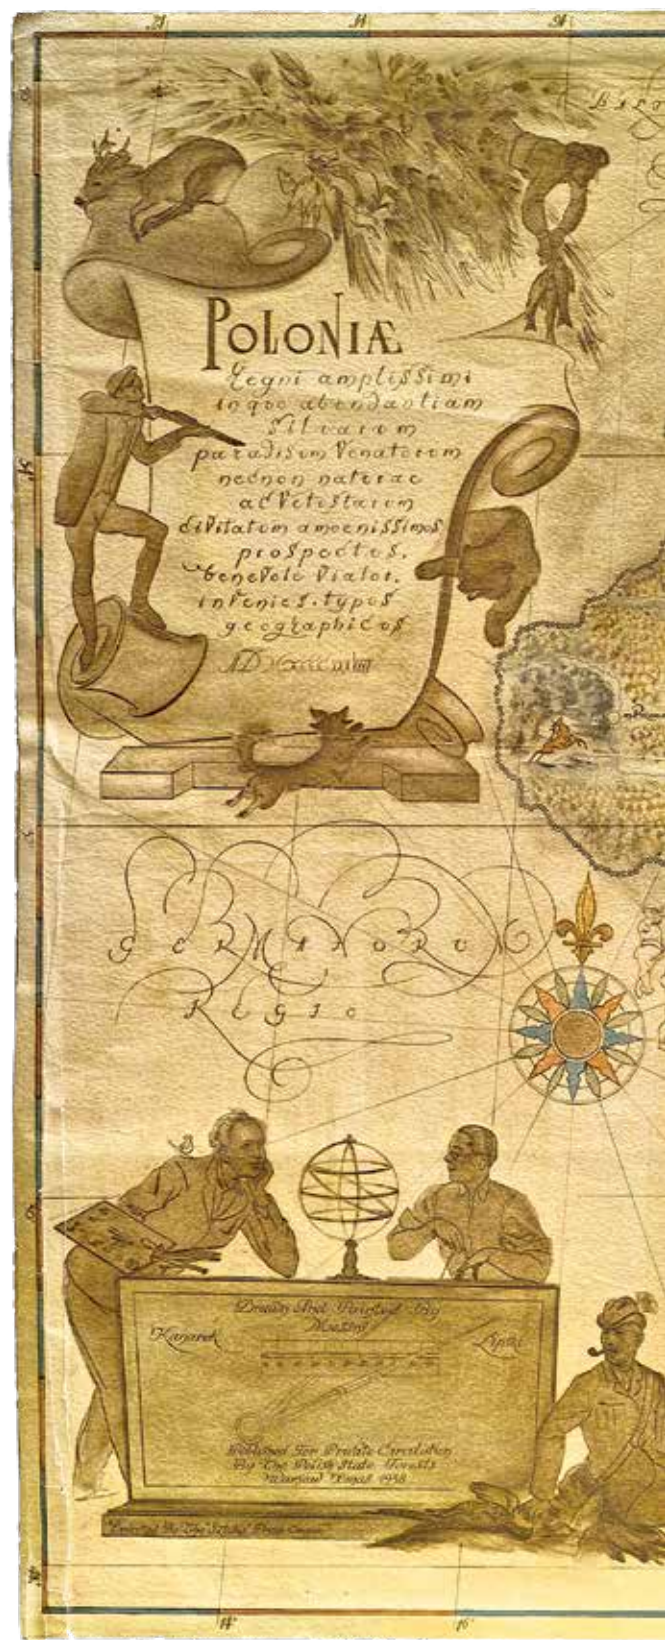 POLONIÆ
Regni amplissimi
in quo abundantiam
Silvarum
paradisum Venatorum
necnon naturae
ac Vetustarum
ciVitatum amoenissimos
prospectus,
beneVole Viator,
inVenies. typos
geographicos
AD
GERMANORUM
REGIO
Drawn And Painted By
Messrs
Kanarek
Lipski
Published For Private Circulation
By The Polish State Forests
Warsaw Xmas 1938
Printed By The
14
16